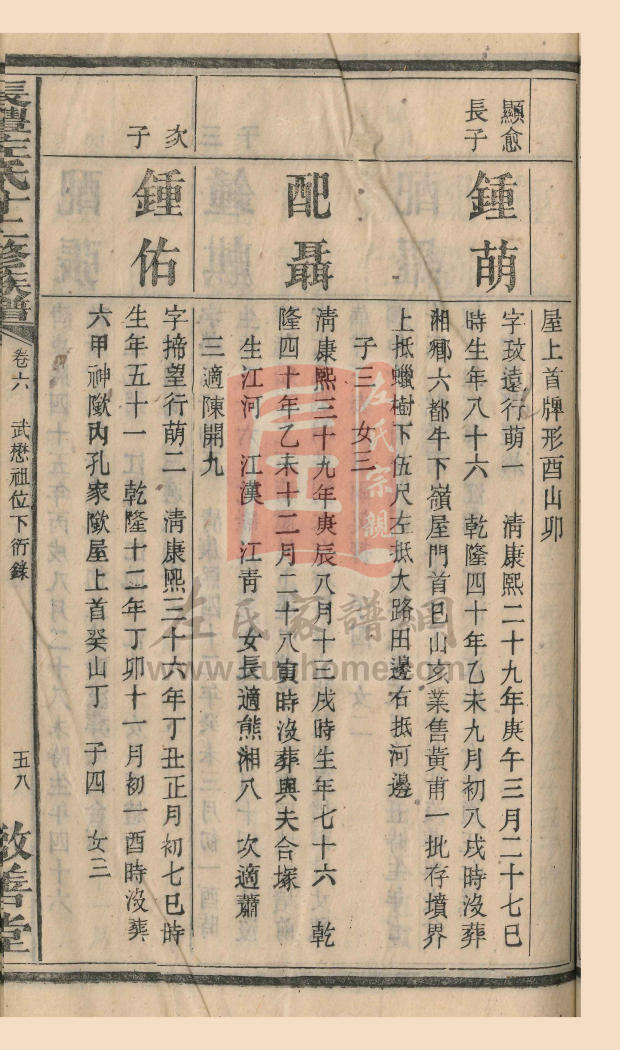 屋上首牌形酉山卯
顯愈
長子
鍾萌
字玟遠行萌一 清康熙二十九年庚午三月二十七巳
時生年八十六 乾隆四十年乙未九月初八戌時沒葬
湘鄉六都牛下嶺屋門首巳山亥業售黃甫一批存墳界
上抵蠟樹下伍尺左抵大路田邊右抵河邊
子三 女三
配聶
清康熙三十九年庚辰八月十三戌時生年七十六 乾
隆四十年乙未十二月二十八寅時沒葬與夫合塚
生江河 江漢 江青 女長適熊湘八 次適蕭
三適陳開九
次
子
鍾佑
字掃望行萌二 清康熙三十六年丁丑正月初七巳時
生年五十一 乾隆十二年丁卯十一月初一酉時沒葬
六甲神歐內孔家歐屋上首癸山丁 子四 女三
長醴左氏十二修族譜
卷六 武懋祖位下衍錄
五八
敦善堂
左氏宗親
左氏家譜網